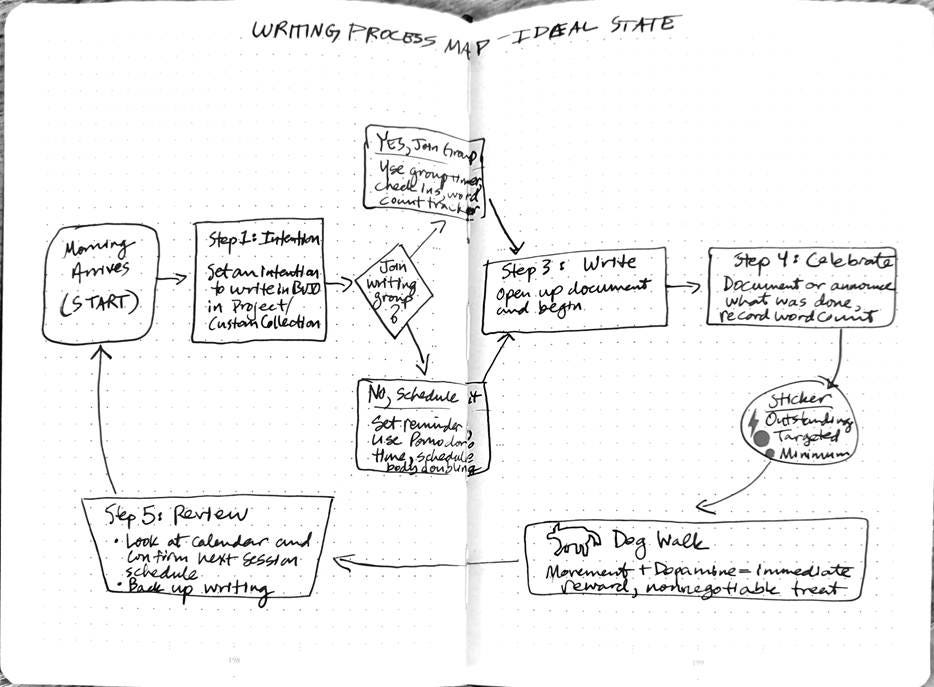 WRITING PROCESS MAP - IDEAL STATE
Morning
Arrives
(START)
Step 1: Intention
Set an intention
to write in BUJO
in Project/
Custom Collection
Join
writing
group
?
YES, Join Group
Use group timer,
check ins, word
count tracker
No, schedule it
Set reminder,
use Pomodoro
time, schedule
body doubling
Step 3: Write
Open up document
and begin.
Step 4: Celebrate
Document or announce
what was done,
record word count
Sticker
Outstanding
Targeted
Minimum
Dog Walk
Movement + Dopamine = immediate
reward, nonnegotiable treat
Step 5: Review
• Look at calendar and
confirm next session
schedule
• Back up writing
198
199